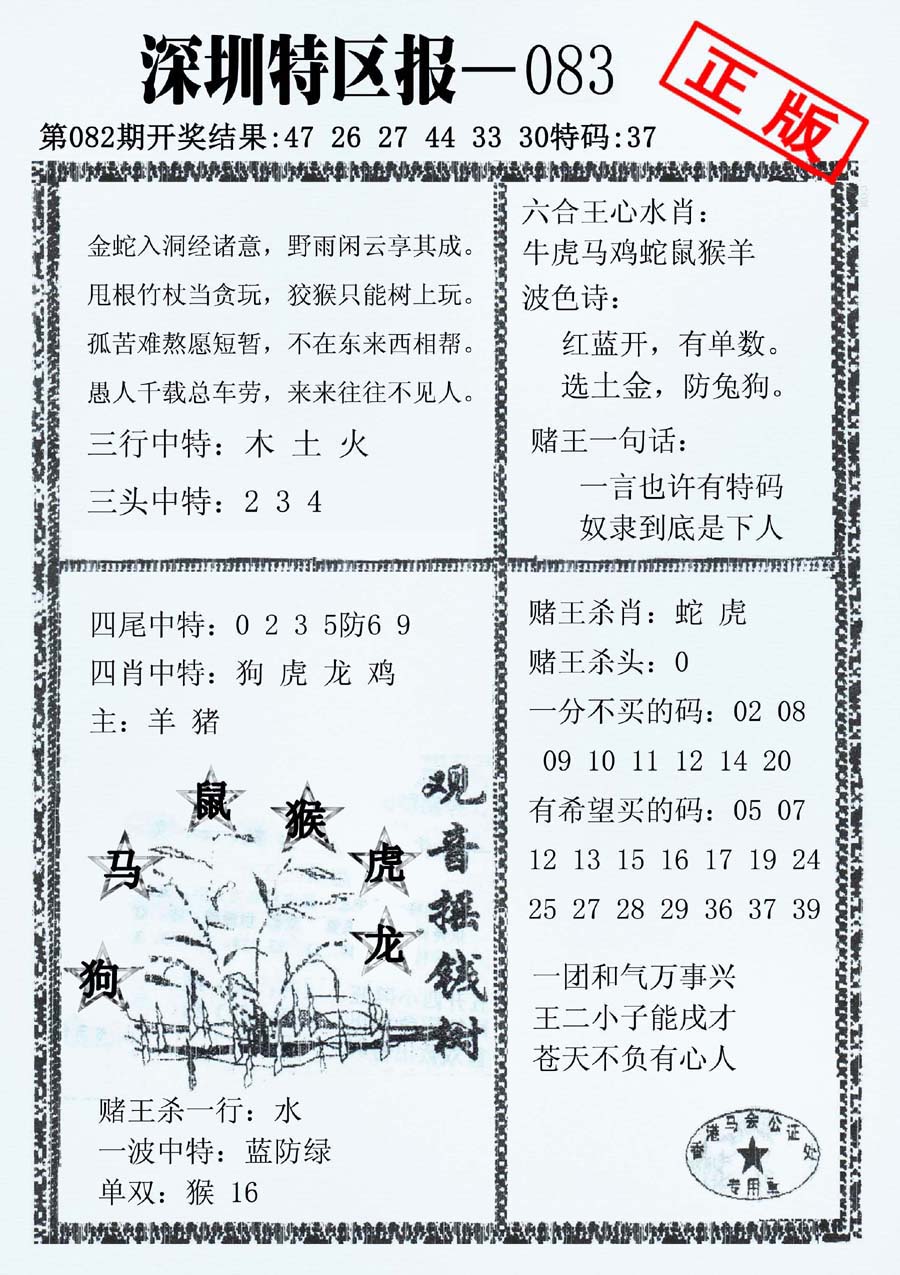 深圳特区报—083
正版
第082期开奖结果:47 26 27 44 33 30特码:37
金蛇入洞经诸意，野雨闲云享其成。
甩根竹杖当贪玩，狡猴只能树上玩。
孤苦难熬愿短暂，不在东来西相帮。
愚人千载总车劳，来来往往不见人。
三行中特：木 土 火
三头中特：2 3 4
六合王心水肖：
牛虎马鸡蛇鼠猴羊
波色诗：
红蓝开，有单数。
选土金，防兔狗。
赌王一句话：
一言也许有特码
奴隶到底是下人
四尾中特：0 2 3 5防6 9
四肖中特：狗 虎 龙 鸡
主：羊 猪
鼠
猴
马
虎
龙
狗
观音摇钱树
赌王杀一行：水
一波中特：蓝防绿
单双：猴 16
赌王杀肖：蛇 虎
赌王杀头：0
一分不买的码：02 08
09 10 11 12 14 20
有希望买的码：05 07
12 13 15 16 17 19 24
25 27 28 29 36 37 39
一团和气万事兴
王二小子能戌才
苍天不负有心人
香港马会公证处
专用章